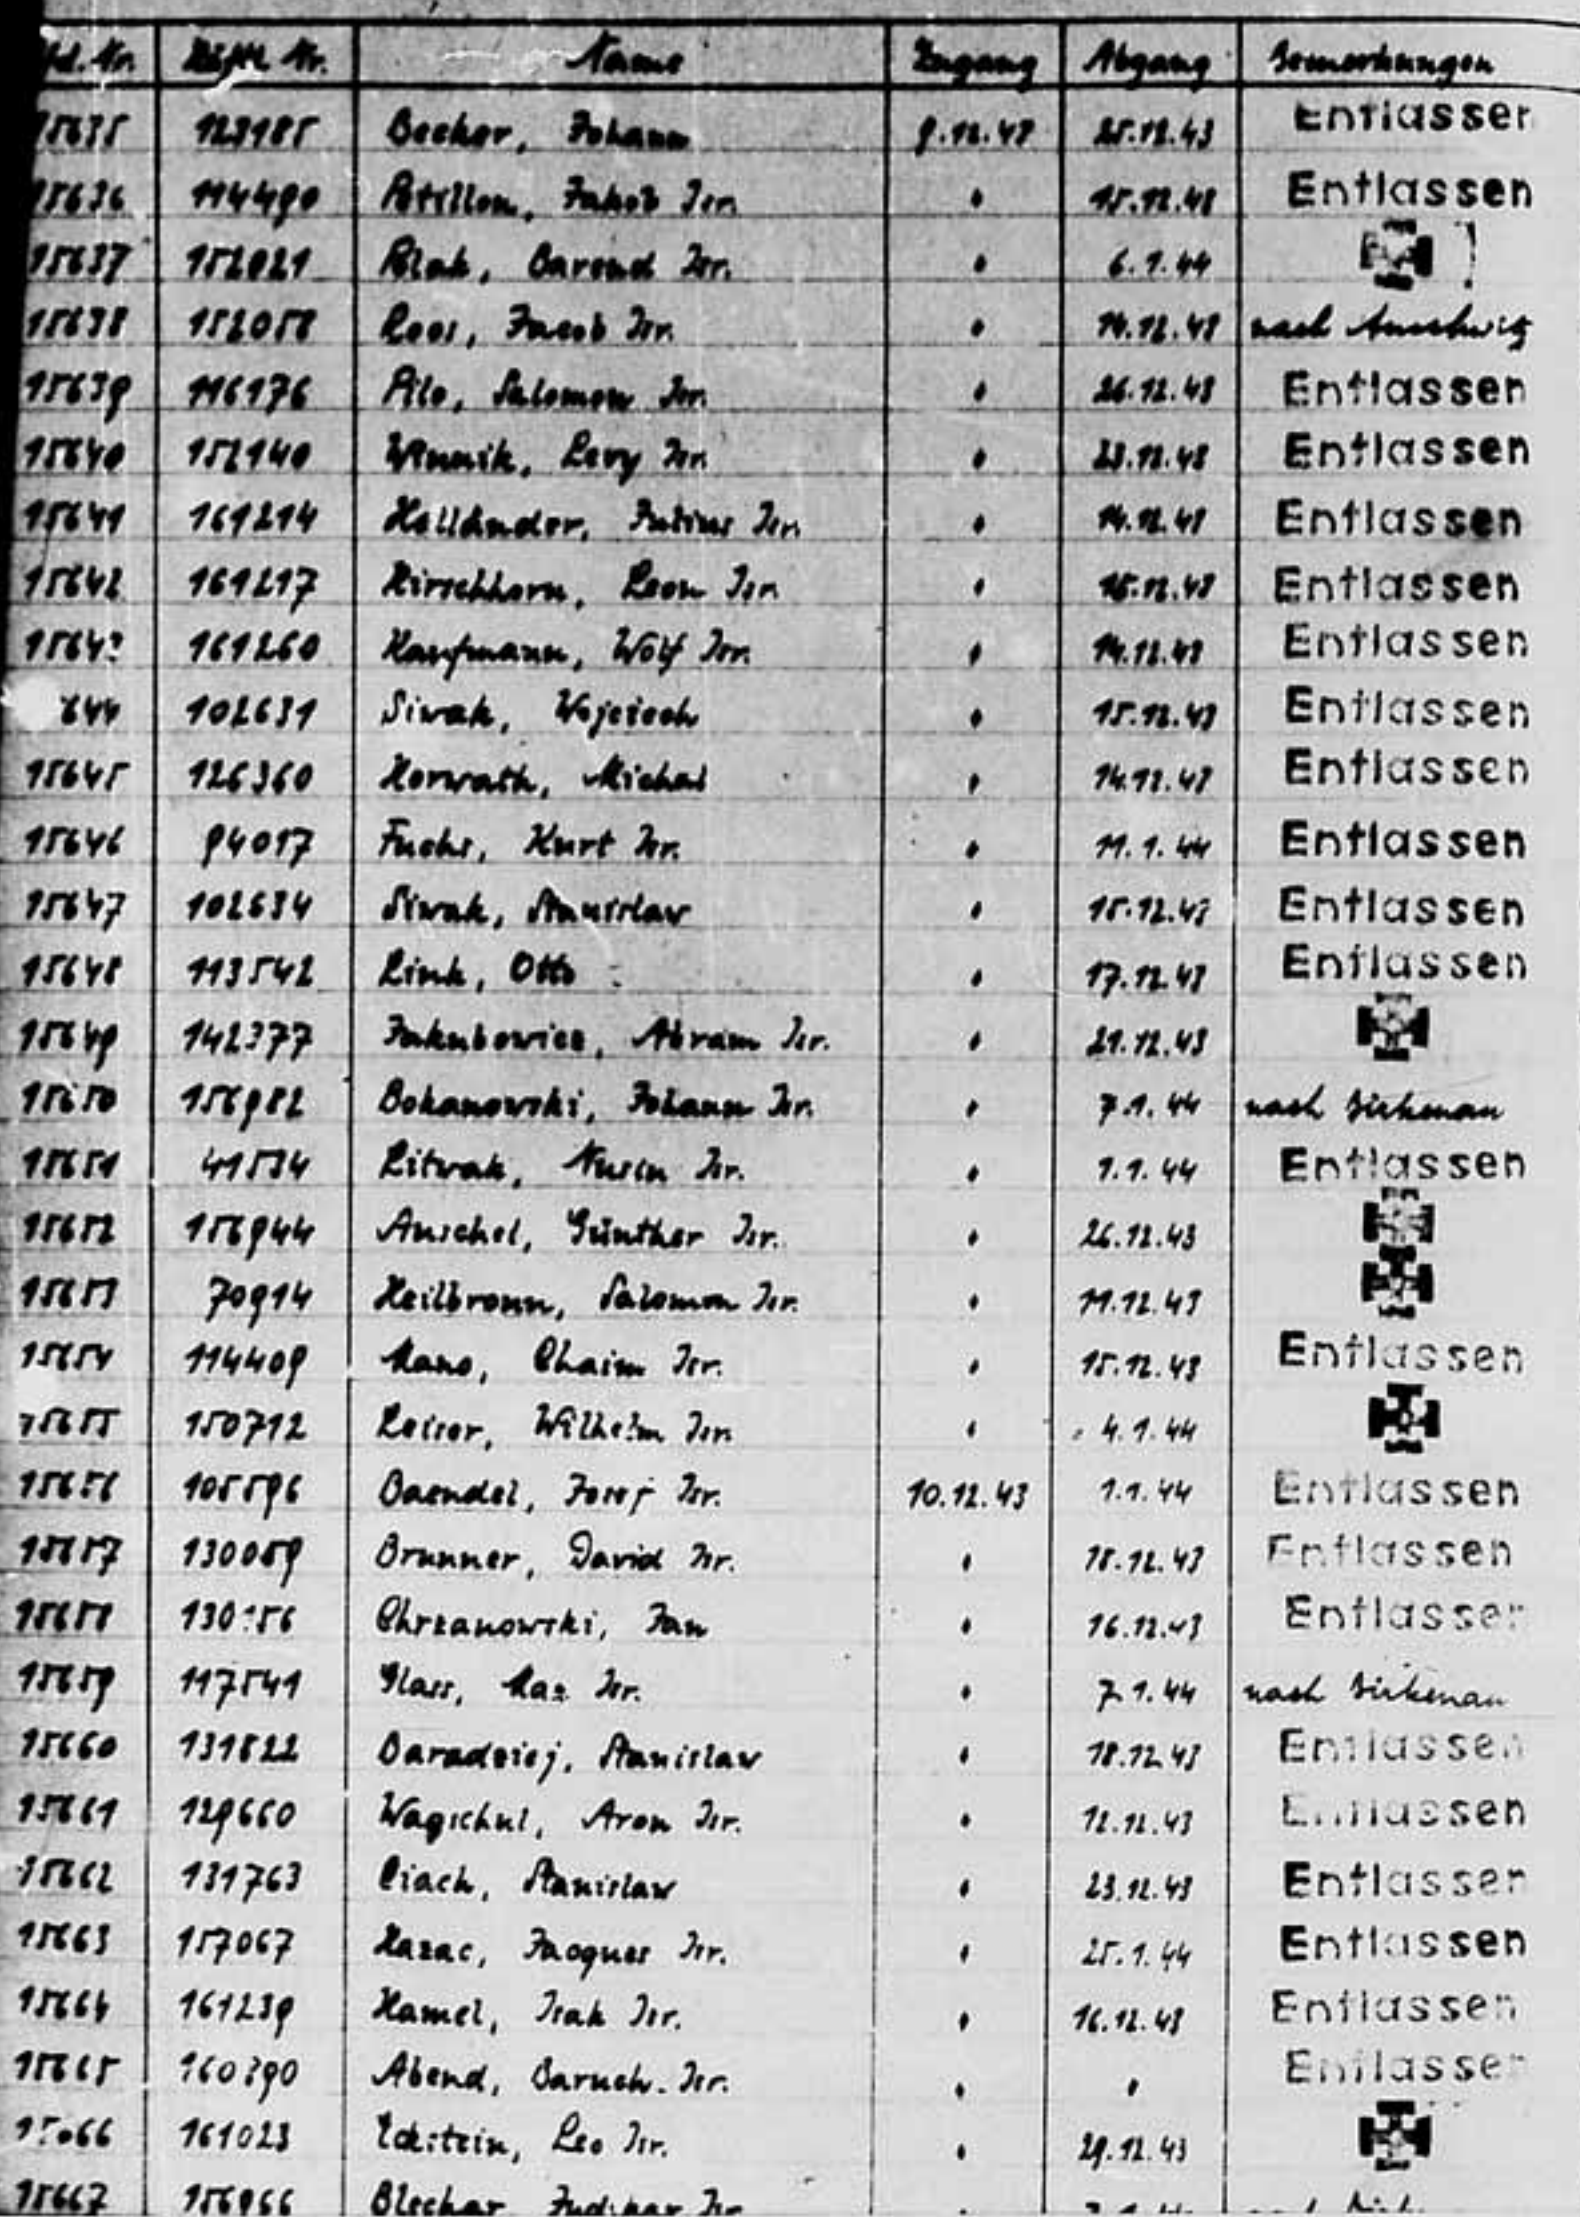 Lfd. Nr. Häftl. Nr. Name Zugang Abgang Bemerkungen
15635 123185 Becker, Johann 9.12.43 25.12.43 Entlassen
15636 114490 Jakob Isr. " 15.12.43 Entlassen
15637 152021 Blak, Barend Isr. " 6.1.44
15638 152058 Roos, Jacob Isr. " 14.12.43 nach Auschwitz
15639 116176 Pilo, Salomon Isr. " 26.12.43 Entlassen
15640 152140 Winnik, Levy Isr. " 23.12.43 Entlassen
15641 161214 Holländer, Julius Isr. " 14.12.43 Entlassen
15642 161217 Hirschhorn, Leon Isr. " 15.12.43 Entlassen
15643 161260 Kaufmann, Wolf Isr. " 14.12.43 Entlassen
644 102631 Siwak, Wojciech " 15.12.43 Entlassen
15645 126360 Horwath, Michal " 14.12.43 Entlassen
15646 94017 Fuchs, Kurt Isr. " 11.1.44 Entlassen
15647 102634 Siwak, Stanislaw " 15.12.43 Entlassen
15648 113542 Link, Otto " 17.12.43 Entlassen
15649 142377 Jakubowicz, Abram Isr. " 21.12.43
15650 156982 Bokanowski, Johann Isr. " 7.1.44 nach Birkenau
15651 41534 Litwak, Nusin Isr. " 1.1.44 Entlassen
15652 156944 Anschel, Günther Isr. " 26.12.43
15653 70914 Heilbronn, Salomon Isr. " 11.12.43
15654 114409 Mano, Chaim Isr. " 15.12.43 Entlassen
15655 150712 Leiser, Wilhelm Isr. " 4.1.44
15656 105596 Baendel, Josef Isr. 10.12.43 1.1.44 Entlassen
15657 130089 Brunner, David Isr. " 15.12.43 Entlassen
15658 Chrzanowski, Jan " 16.12.43 Entlassen
15659 117541 Glass, Max Isr. " 7.1.44 nach Birkenau
15660 131822 Baradziej, Stanislaw " 18.12.43 Entlassen
15661 129660 Wagschul, Aron Isr. " 12.12.43 Entlassen
15662 131763 Ciach, Stanislaw " 23.12.43 Entlassen
15663 157067 Hazac, Jacques Isr. " 25.1.44 Entlassen
15664 161239 Hamel, Isak Isr. " 16.12.43 Entlassen
15665 160390 Abend, Baruch Isr. " " Entlassen
15666 161023 Eckstein, Leo Isr. " 29.12.43
15667 156966 Isr.